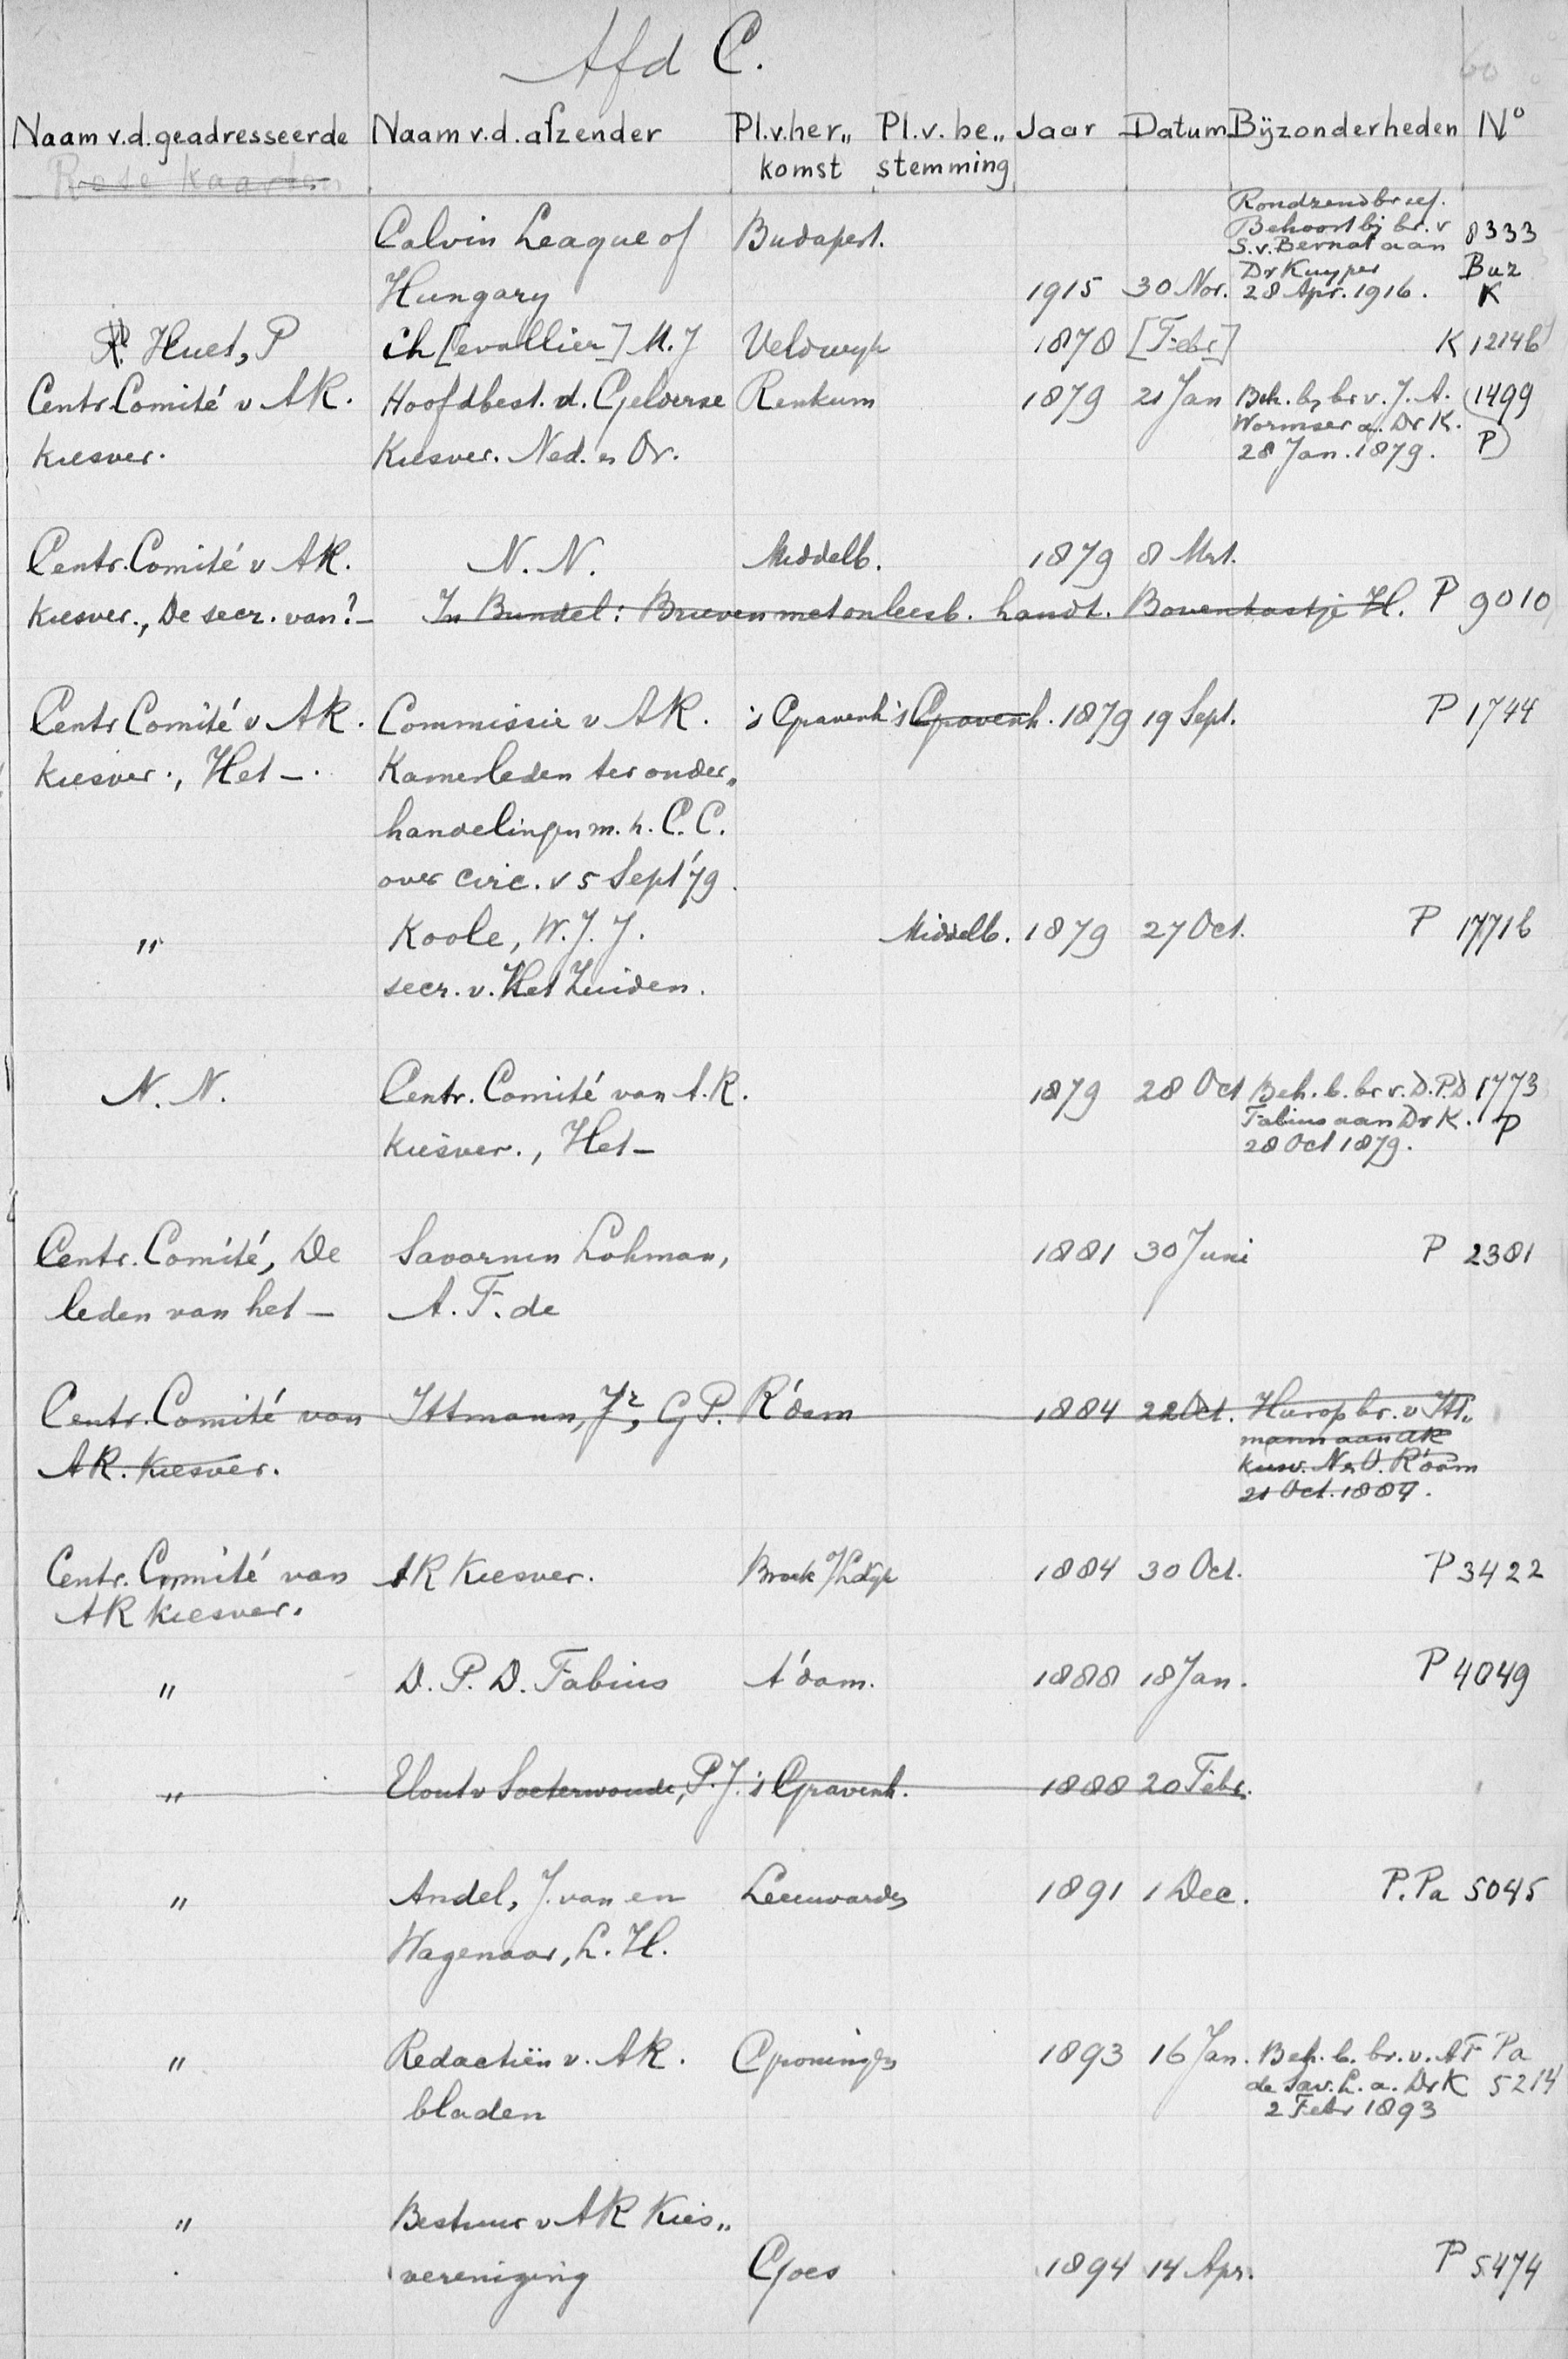 Afd C.
60
Naam v.d. geadresseerde Naam v.d. afzender Pl.v.her„ Pl.v.be„ Jaar Datum Bijzonderheden No
komst stemming
Rose kaarten
Rondzendbrief.
Calvin League of Budapest. Behoort bij br. v 8333
S.v. Bernat aan
Dr Kuyper Buz
Hungary 1915 30 Nov. 28 Apr. 1916. K
Huet, P Ch[evallier] M.J Veldwijk 1878 [Febr] K 1214b
Centr Comité v AR. Hoofdbest. d. Gelderse Renkum 1879 21 Jan Beh. bij br v. J. A. (1499
Wormser a. Dr K.
kiesver. Kiesver. Ned. en Or. 28 Jan. 1879. P)
Centr. Comité v AR. N. N. Middelb. 1879 8 Mrt.
kiesver., De secr. van?- In Bundel: Brieven met onleesb. handt. Bovenkastje H. P 9010
Centr Comité v AR. Commissie v AR. 's Gravenh 's Gravenh. 1879 19 Sept. P 1744
kiesver., Het -. Kamerleden ter onder„
handelingen m. h. C. C.
over circ. v 5 Sept '79.
" Koole, W. J. J. Middelb. 1879 27 Oct. P 1771b
secr. v. Het Zuiden.
N. N. Centr. Comité van A.R. 1879 28 Oct Beh. b. br v. D.P.D 1773
Fabius aan Dr K. P
kiesver., Het - 28 Oct 1879.
Centr. Comité, De Savornin Lohman, 1881 30 Juni P 2381
leden van het - A. F. de
Centr. Comité van Ittmann, Jr, G P. R'dam 1884 22 Oct. Hierop br. v Itt„
mann aan AR
AR. kiesver. kiesv. N en O. R'dam
21 Oct. 1884.
Centr. Comité van AR Kiesver. Broek o/Ldijk 1884 30 Oct. P 3422
AR kiesver.
" D. P. D. Fabius A'dam. 1888 18 Jan. P 4049
" Elout v Soeterwoude, P. J. 's Gravenh. 1888 20 Febr.
" Andel, J. van en Leeuwarden 1891 1 Dec. P. Pa 5045
Wagenaar, L. H.
" Redactiën v. AR. Groningen 1893 16 Jan. Beh. b. br. v. AF Pa
de Sav. L. a. Dr K 5214
bladen 2 Febr 1893
" Bestuur v AR Kies„
vereniging Goes 1894 14 Apr. P 5474